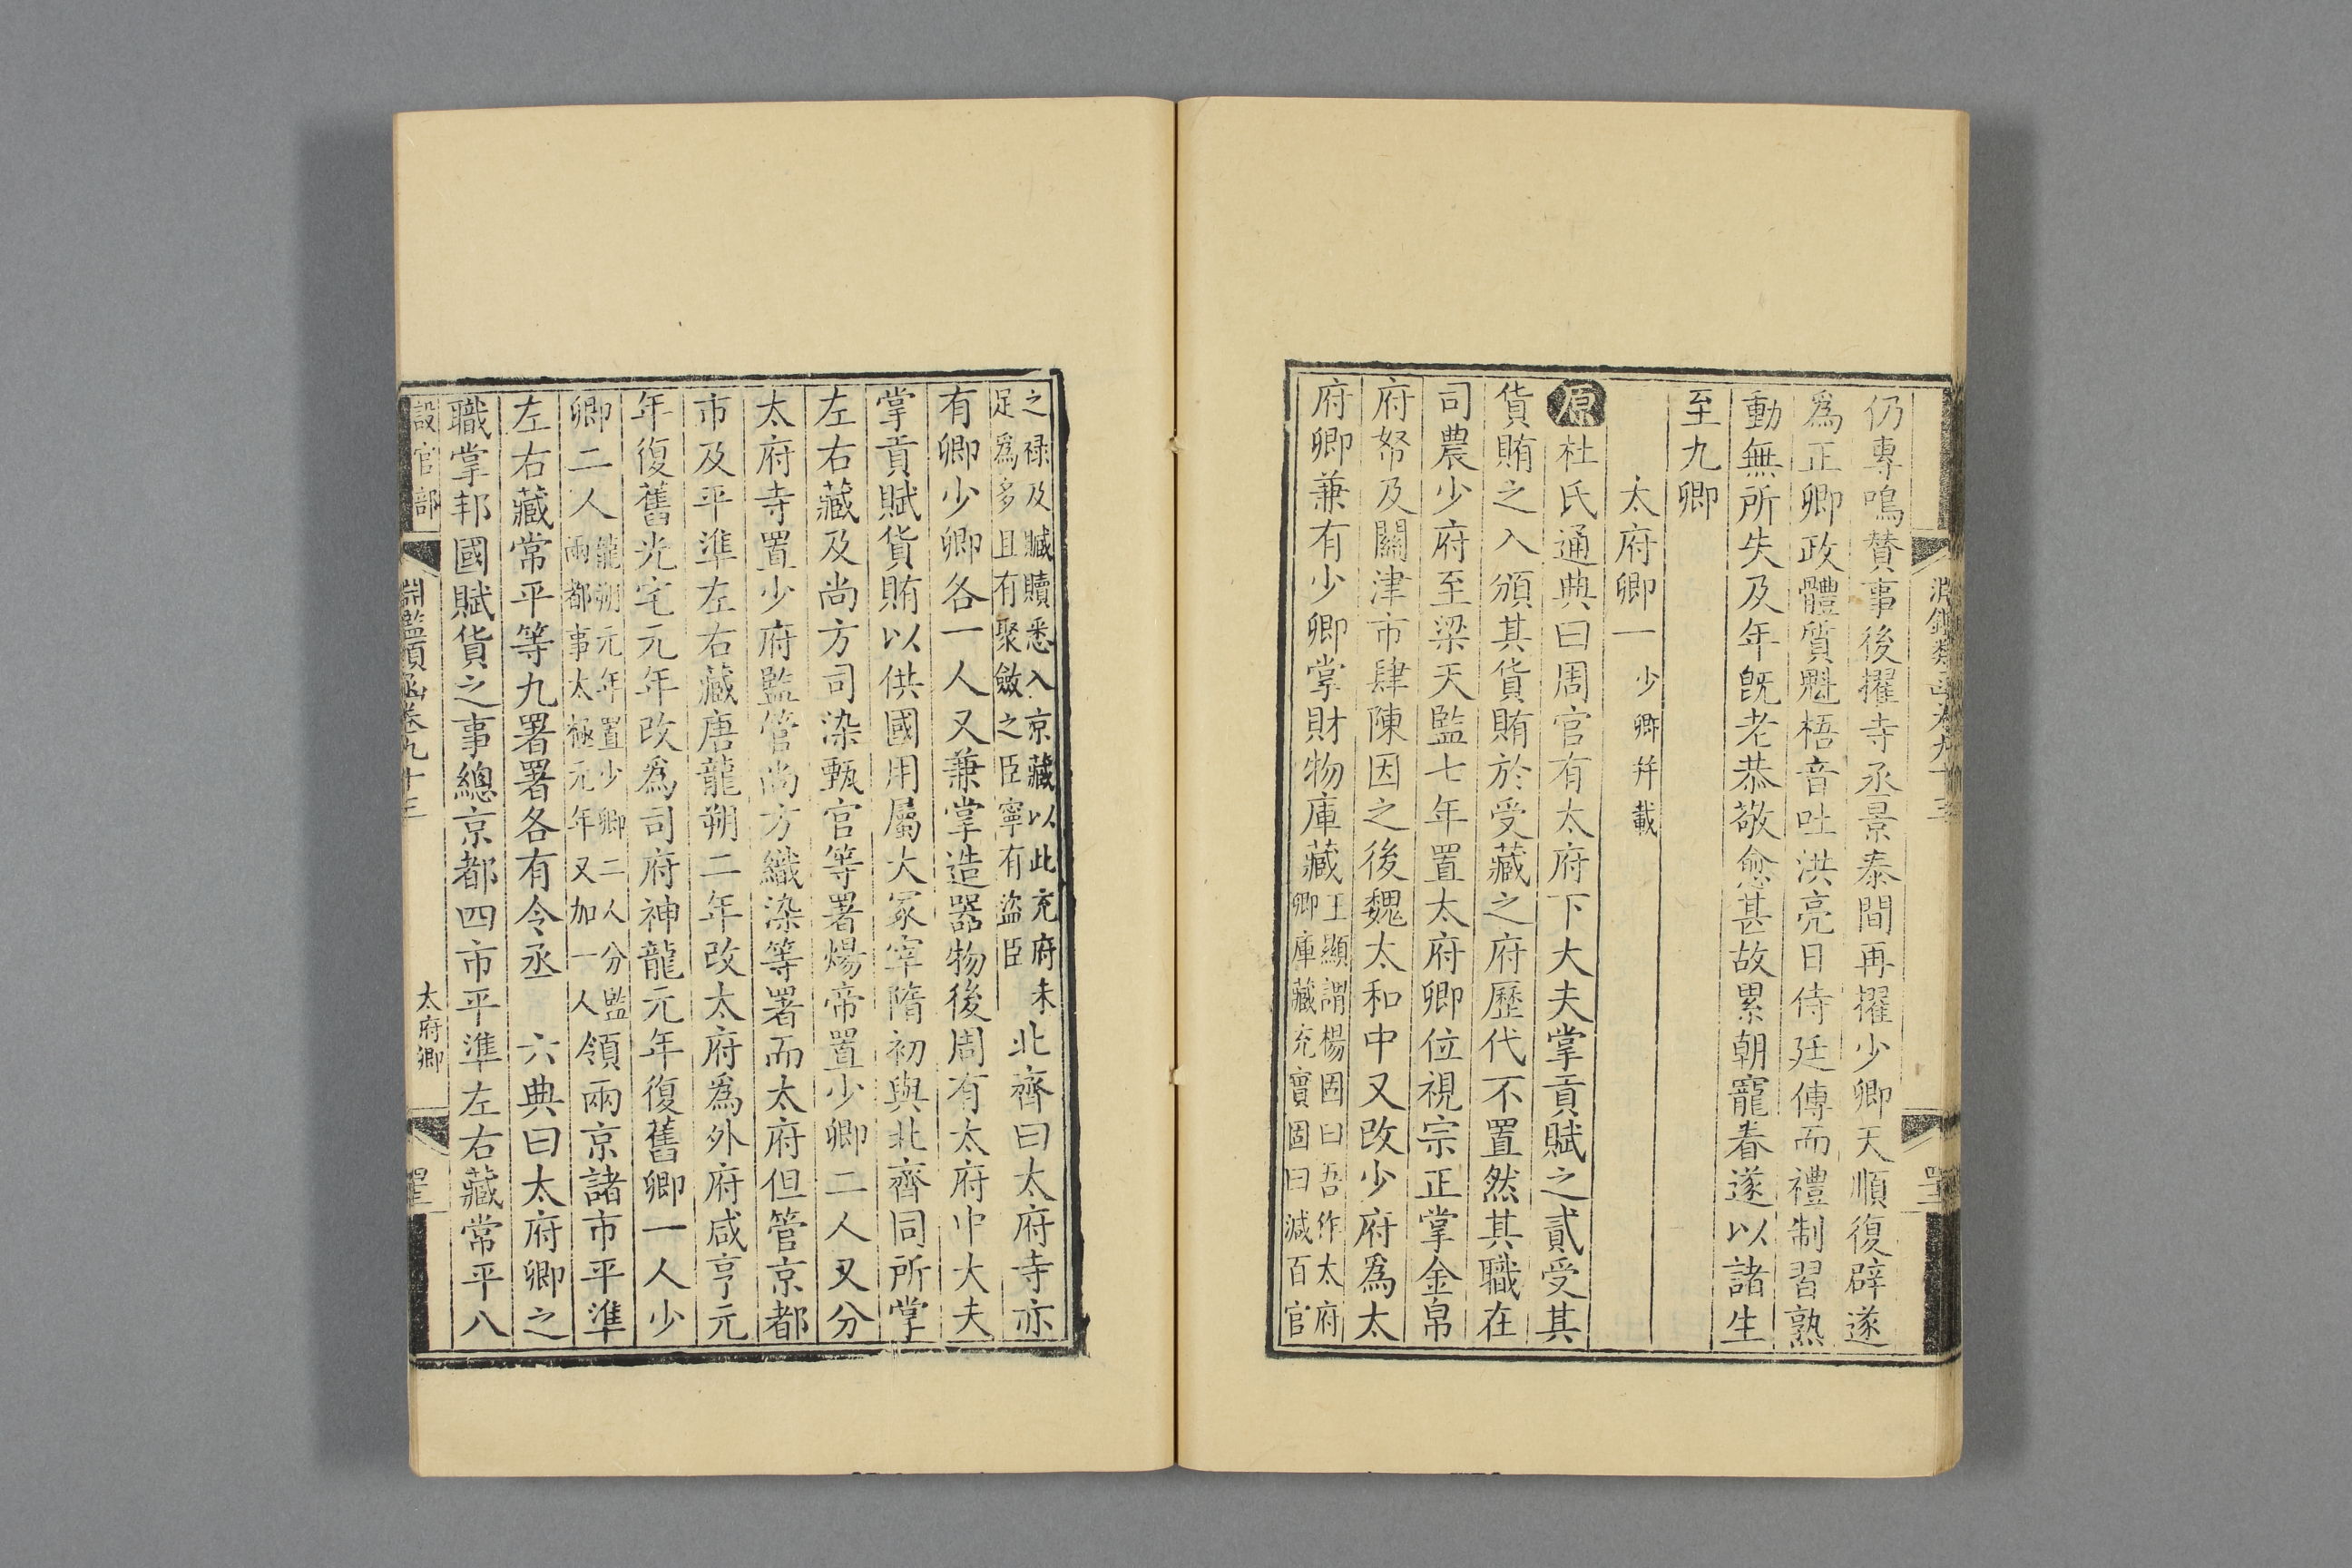 仍專鳴贊事後擢寺丞景泰間再擢少卿天順復辟遂
爲正卿政體質魁梧音吐洪亮日侍廷傳而禮制習熟
動無所失及年旣老恭敬愈甚故累朝寵眷遂以諸生
至九卿
太府卿一少卿并載
原杜氏通典曰周官有太府下大夫掌貢賦之貳受其
貨賄之入頒其貨賄於受藏之府歷代不置然其職在
司農少府至梁天監七年置太府卿位視宗正掌金帛
府帑及關津市肆陳因之後魏太和中又改少府爲太
府卿兼有少卿掌財物庫藏
王顯謂楊固曰吾作太府
卿庫藏充實固曰減百官
之祿及贓贖悉入京藏以此充府未
足爲多且有聚斂之臣寧有盜臣
北齊曰太府寺亦
有卿少卿各一人又兼掌造器物後周有太府中大夫
掌貢賦貨賄以供國用屬大冢宰隋初與北齊同所掌
左右藏及尚方司染甄官等署煬帝置少卿二人又分
太府寺置少府監管尚方織染等署而太府但管京都
市及平準左右藏唐龍朔二年改太府爲外府咸亨元
年復舊光宅元年改爲司府神龍元年復舊卿一人少
卿二人
龍朔元年置少卿二人分監
兩都事太極元年又加一人
領兩京諸市平準
左右藏常平等九署署各有令丞 六典曰太府卿之
職掌邦國賦貨之事總京都四市平準左右藏常平八
設官部
淵鑑類函卷九十三
太府卿